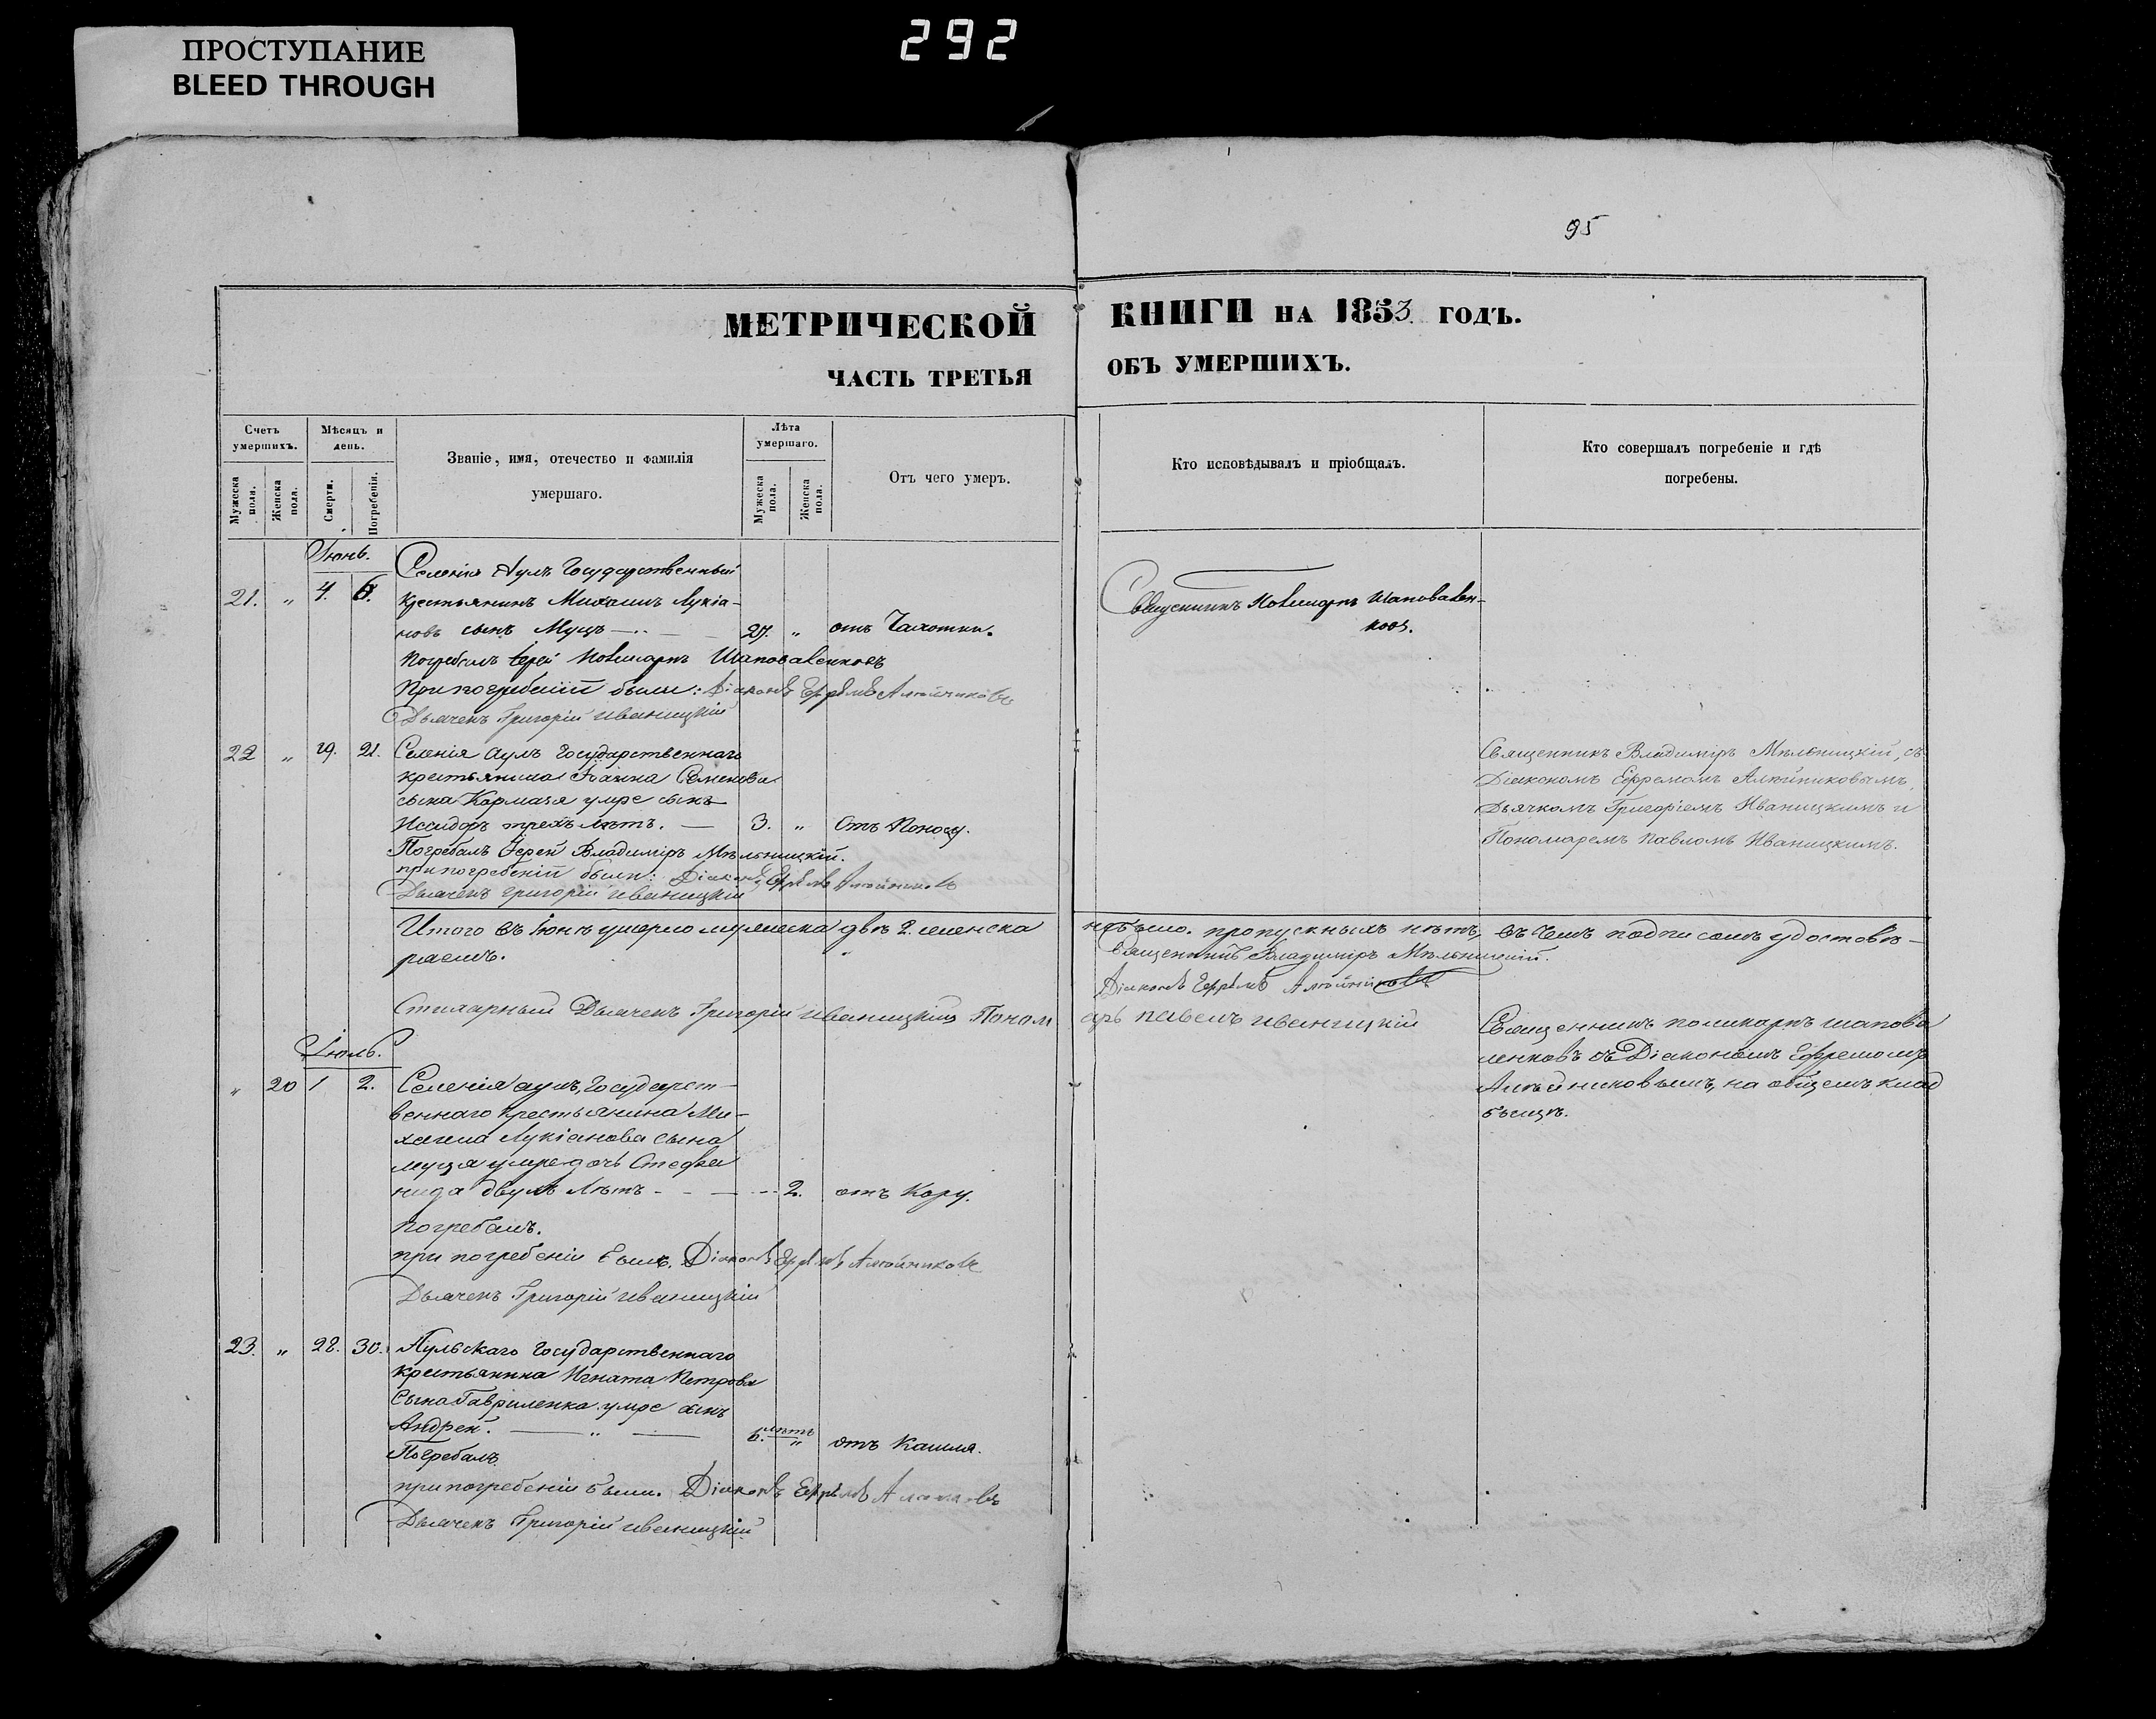 ПРОСТУПАНИЕ
BLEED THROUGH
292
95
МЕТРИЧЕСКОЙ КНИГИ НА 1853 ГОДЪ.
ЧАСТЬ ТРЕТЬЯ ОБЪ УМЕРШИХЪ.
Счетъ умершихъ.
Мужеска пола.
Женска пола.
Мѣсяцъ и день.
Смерти.
Погребенія.
Званіе, имя, отечество и фамилія
умершаго.
Лѣта умершаго.
Мужеска пола.
Женска пола.
Отъ чего умеръ.
Кто исповѣдывалъ и пріобщалъ.
Кто совершалъ погребеніе и гдѣ
погребены.
Іюнь.
Селенія Аулъ Государственный
21. „ 4. 6. крестьянинъ Михаилъ Лукіа-
новъ сынъ Муцъ 27. „ отъ Чахотки.
Священникъ Поликарпъ Шаповален-
ковъ.
Погребалъ Іерей Поликарпъ Шаповаленковъ
При погребеніи были: Діаконъ Ефремъ Алтойниковъ
Дьячекъ Григорій Иваницкій
22 „ 19. 21. Селенія Аулъ Государственнаго
крестьянина Іоанна Семенова
сына Кормача умре сынъ
Исидоръ трехъ лѣтъ. — 3. „ Отъ Поносу.
Погребалъ Іерей Владиміръ Мѣльницкій.
при погребеніи были: Діаконъ Ефремъ Алтойниковъ
Дьячекъ Григорій Иваницкій
Священникъ Владиміръ Мѣльницкій, съ
Діакономъ Ефремомъ Алтойниковымъ,
Дьячкомъ Григоріемъ Иваницкимъ и
Пономаремъ Павломъ Иваницкимъ.
Итого въ Іюнѣ умерло мужеска двѣ 2. женска небыло. пропускныхъ нѣтъ, въ чемъ подписомъ удостовѣ-
ряемъ.
Священникъ Владиміръ Мѣльницкій.
Діаконъ Ефремъ Алтойниковъ
Дьячекъ Григорій Иваницкій Пономарь Павелъ Иваницкій
Іюль.
„ 20 1 2. Селенія Аулъ, Государст-
веннаго Крестьянина Ми-
хаила Лукіанова сына
Муця умре дочь Стефа
нида двухъ лѣтъ - - - 2. отъ Кору.
погребалъ.
при погребеніи были. Діаконъ Ефремъ Алтойниковъ
Дьячекъ Григорій Иваницкій
Священникъ Поликарпъ Шапова
ленковъ съ Діакономъ Ефремомъ
Алтойниковымъ, на общемъ клад
бищѣ.
23. „ 28. 30. Аульскаго Государственнаго
крестьянина Игната Петрова
Сына Гавриленка умре сынъ
Андрей. — „ — 6. лѣтъ „ отъ Кашля.
Погребалъ
при погребеніи были. Діаконъ Ефремъ
Дьячекъ Григорій Иваницкій